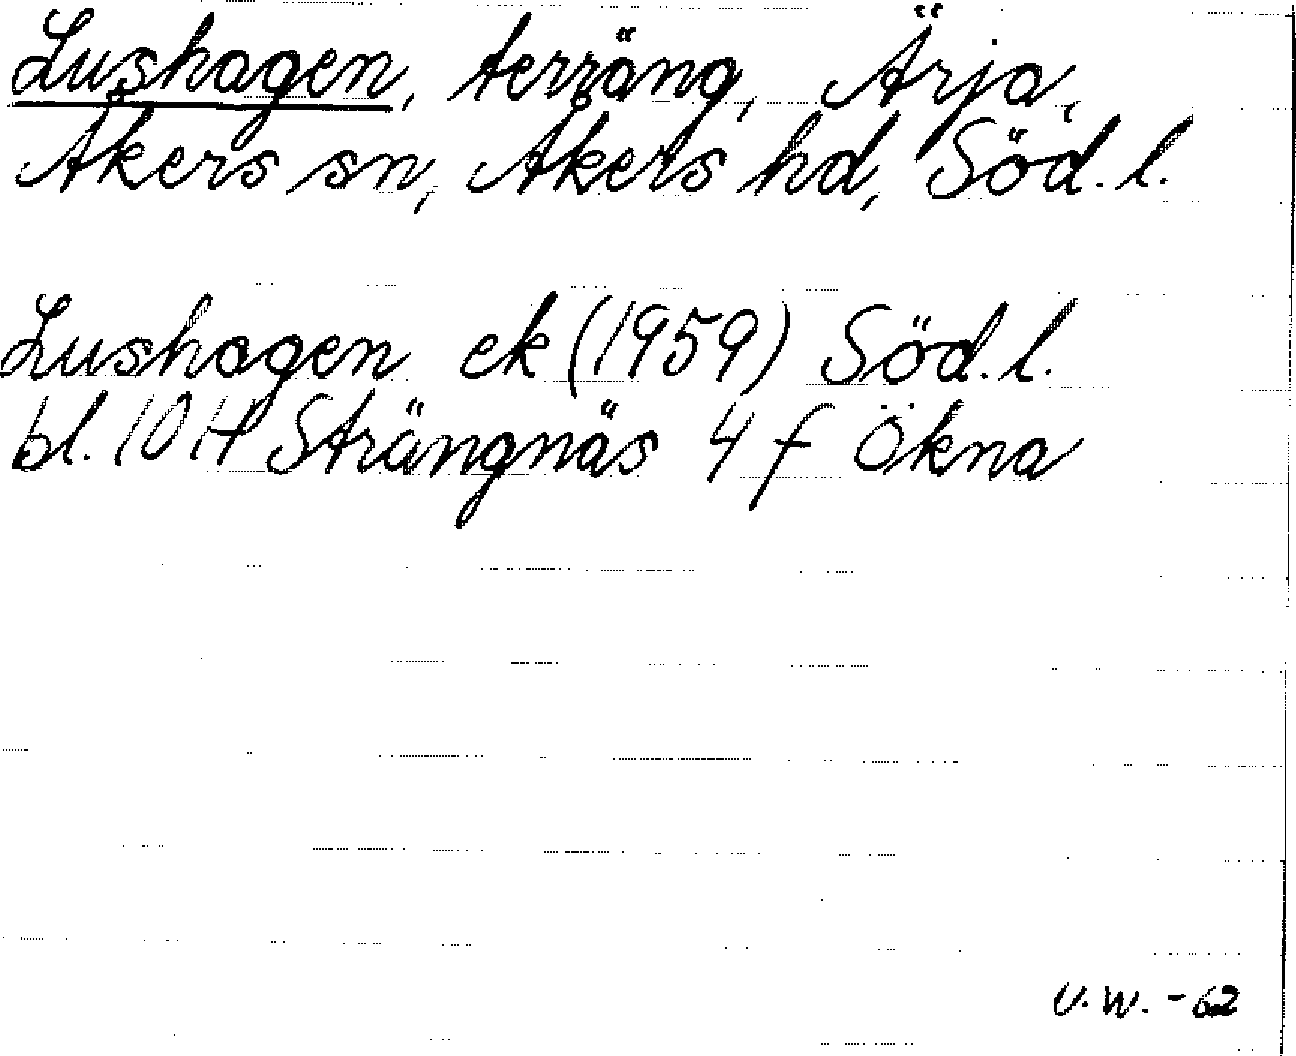 Lushagen, terräng, Ärja,
Åkers sn, Åkers hd, Söd. l.
Lushagen ek (1959) Söd. l.
bl. 10 H Strängnäs 4 f Ökna
U. W. - 62